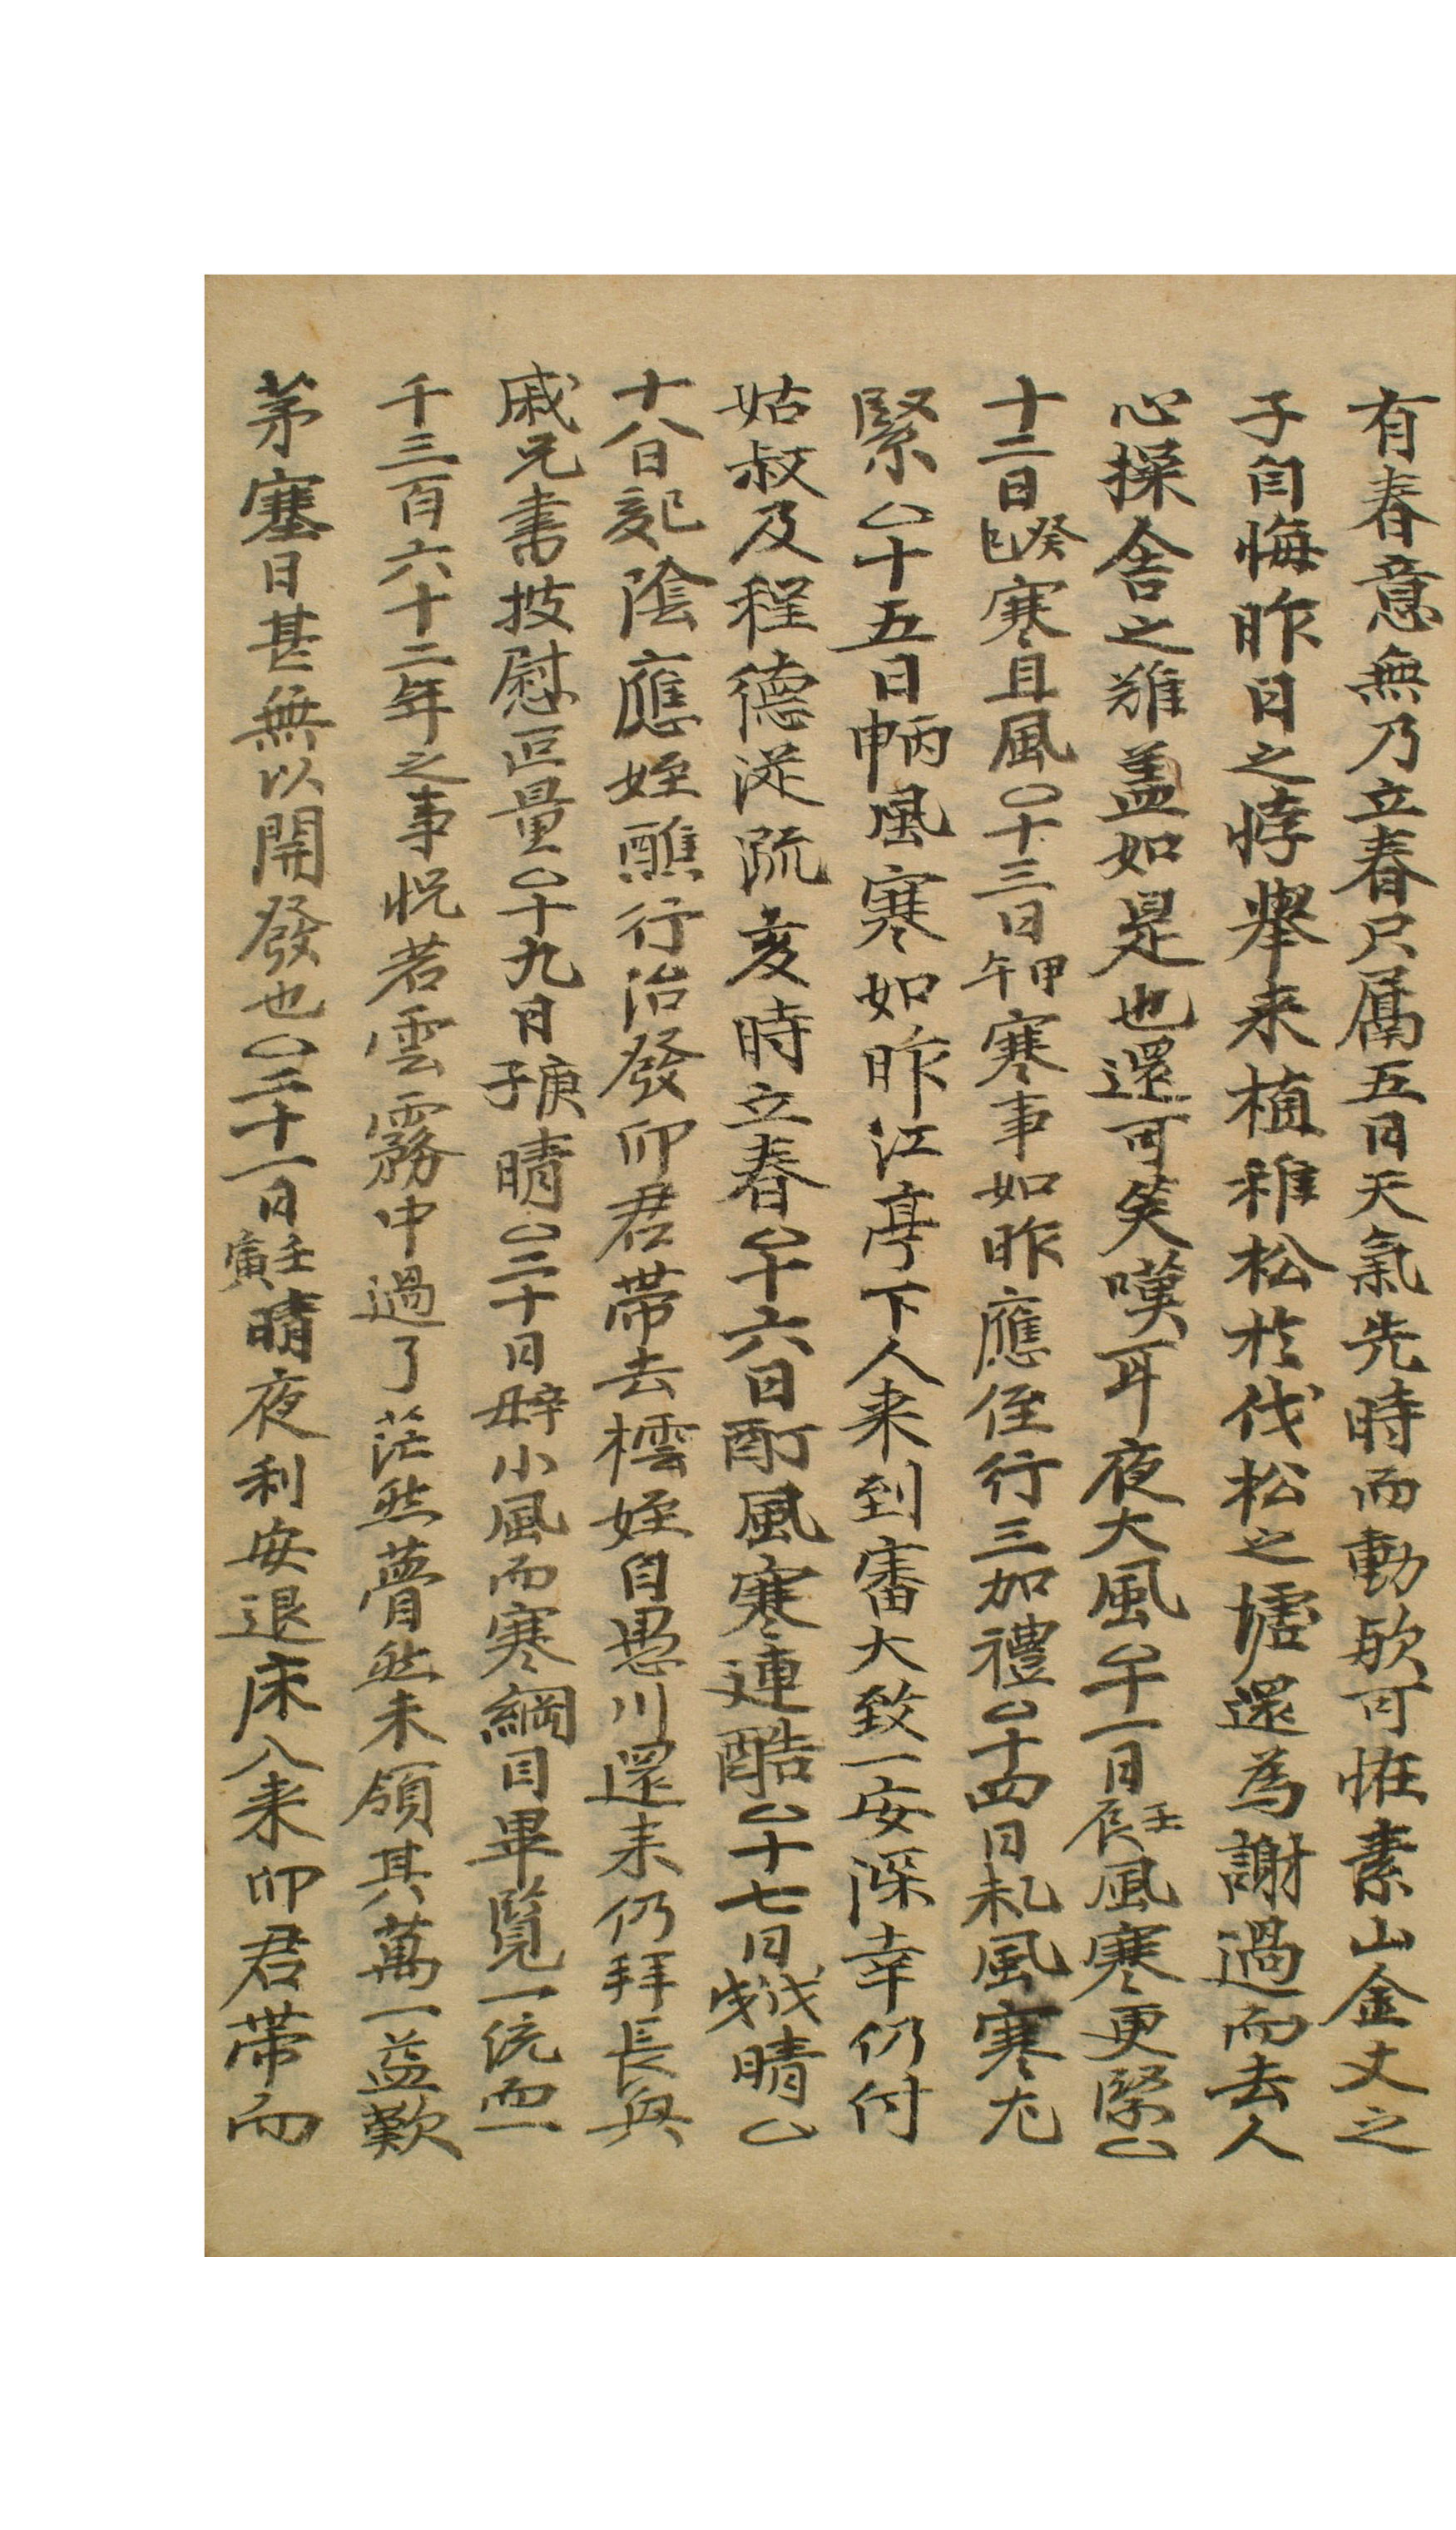 有春意無乃立春只屬五日天氣先時而動歟可恠素山金丈之
子自悔昨日之悖擧来植稚松於伐松之墟還為謝過而去人
心操舍之難盖如是也還可笑嘆耳夜大風○十一日壬辰風寒更緊○
十二日癸巳寒且風○十三日甲午寒事如昨應侄行三加禮○十四日乙未風寒尤
緊○十五日丙申風寒如昨江亭下人来到審大致一安深幸仍付
姑叔及程德從疏亥時立春○十六日丁酉風寒連酷○十七日戊戌晴○
十八日己亥陰應姪醮行治發卯君帶去橒姪自愚川還来仍拜長與
戚兄書披慰叵量○十九日庚子晴○二十日辛丑小風而寒綱目畢覧一統而一
千三百六十二年之事怳若雲霧中過了茫然瞢然未領其萬一益歎
茅塞日甚無以開發也○二十一日壬寅晴夜利安退床八来卯君帶而